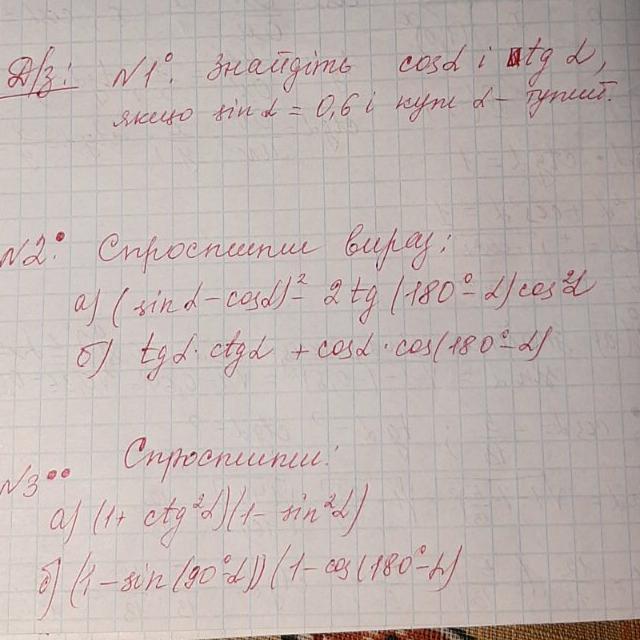 Д/з: №1° Знайдіть cosα і tg α,
якщо sin α = 0,6 і кут α – тупий.
№2° Спростити вираз:
а) (sin α – cosα)² – 2 tg (180° – α) cos²α
б) tgα · ctgα + cosα · cos(180° – α)
№3•• Спростити:
а) (1 + ctg²α)(1 – sin²α)
б) (1 – sin (90° – α)) (1 – cos (180° – α)